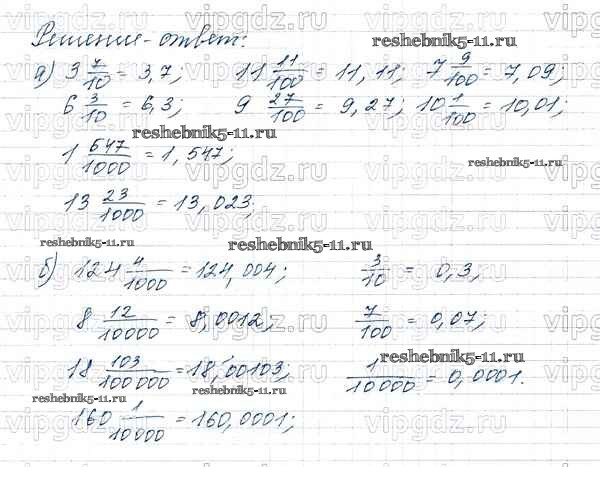 Решение-ответ:
а) 3 7/10 = 3,7; 11 11/100 = 11,11; 7 9/100 = 7,09;
6 3/10 = 6,3; 9 27/100 = 9,27; 10 1/100 = 10,01;
1 547/1000 = 1,547;
13 23/1000 = 13,023;
б) 124 4/1000 = 124,004; 3/10 = 0,3;
8 12/10000 = 8,0012; 7/100 = 0,07;
18 103/100000 = 18,00103; 1/10000 = 0,0001.
160 1/10000 = 160,0001;
reshebnik5-11.ru
reshebnik5-11.ru
reshebnik5-11.ru
reshebnik5-11.ru
reshebnik5-11.ru
reshebnik5-11.ru
reshebnik5-11.ru
reshebnik5-11.ru
vipgdz.ru